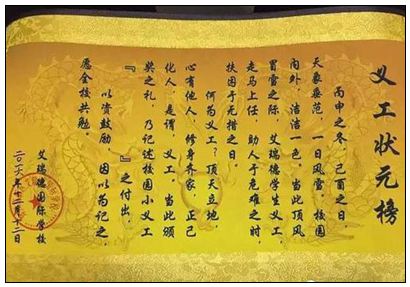 义工状元榜
丙申之冬，己酉之日，
天象垂范，一日风雪，校园
内外，洁洁一色，当此顶风
冒雪之际，艾瑞德学生义工
走马上任，助人于危难之时，
扶困于无措之日。
何为义工？顶天立地，
心有他人，修身齐家，正己
化人，是谓义工，当此颁
奖之礼，乃记述校园小义工
『 』之付出，
以资鼓励，因以为记之，
愿全校共勉。
艾瑞德国际学校
二〇一六年十二月十二日